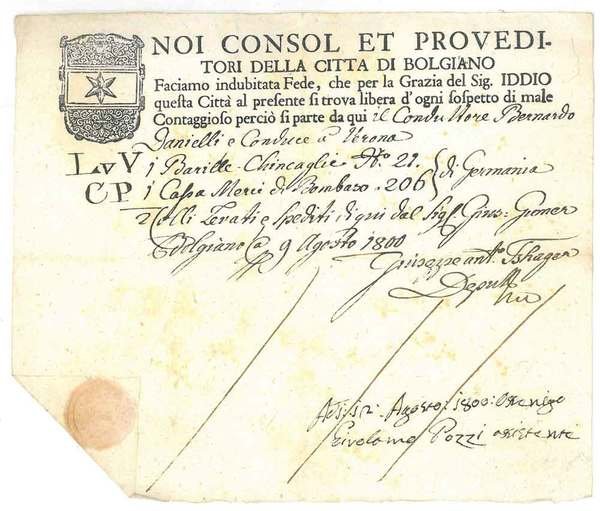 NOI CONSOL ET PROVEDI-
TORI DELLA CITTA DI BOLGIANO
Faciamo indubitata Fede, che per la Grazia del Sig. IDDIO
questa Città al presente si trova libera d'ogni sospetto di male
Contaggioso perciò si parte da qui il Conduttore Bernardo
Danielli e Conduce a Verona
LvV 1 Barille Chincaglie N.o 21.
CP 1 Cassa Merci di Bombaso . 206 } di Germania
2 Colli Levati e Spediti di qui dal Sig.
Bolgiano 9 Agosto 1800
Giuseppe ant.o
Deput
Adi 12. Agosto 1800:
Pozzi assistente